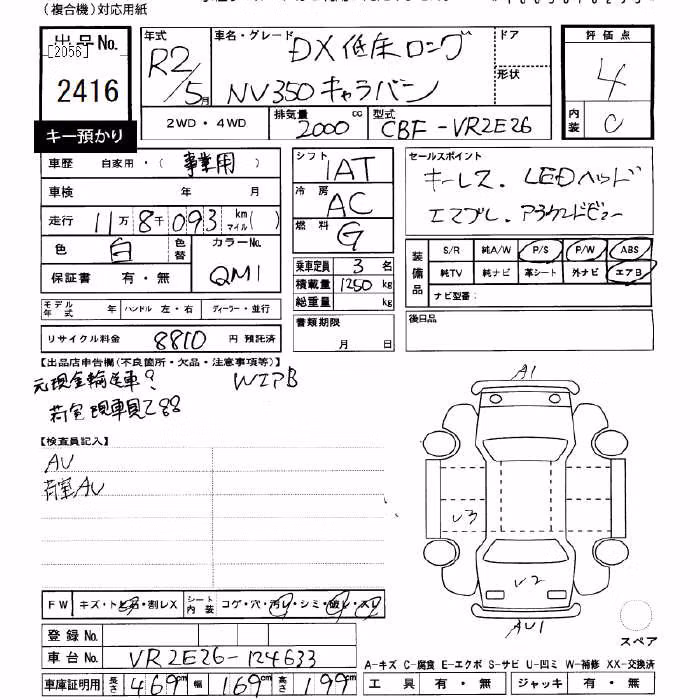 (複合機)対応用紙
出品No.
[2056]
2416
キー預かり
年式 R2/5月
車名・グレード DX 低床ロング
NV350キャラバン
ドア
形状
評価点
4
内装 C
2WD・4WD
排気量 2000 cc
型式 CBF-VR2E26
車歴 自家用・(事業用)
車検 年 月
走行 11万8千093 km マイル( )
色 白 色替 カラーNo. QM1
保証書 有・無
モデル年式 年 ハンドル 左・右 ディーラー・並行
リサイクル料金 8810 円 預託済
シフト IAT
冷房 AC
燃料 G
乗車定員 3 名
積載量 1250 kg
総重量 kg
書類期限
月 日
セールスポイント
キーレス. LEDヘッド
エマブレ. アラウンドビュー
装備品
S/R 純A/W P/S P/W ABS
純TV 純ナビ 革シート 外ナビ エアB
ナビ型番:
後日品
【出品店申告欄(不良箇所・欠品・注意事項等)】
元現金輸送車? WエアB
荷室現車
【検査員記入】
AU
荷室AU
A1
U3
U2
AU1
スペア
FW キズ・トビ石・割レX シート内装 コゲ・穴・汚レ・シミ・破レ・スレ
登録No.
車台No. VR2E26-124633
車庫証明用 長さ 469cm 幅 169cm 高さ 199cm
A-キズ C-腐食 E-エクボ S-サビ U-凹ミ W-補修 XX-交換済
工具 有・無 ジャッキ 有・無